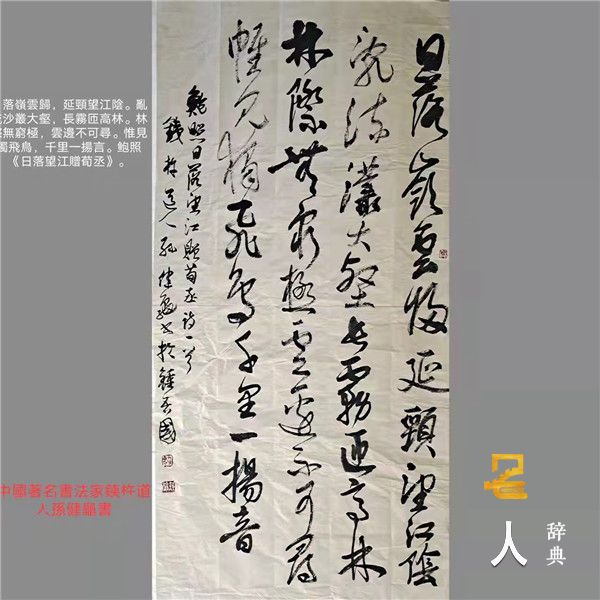 日落嶺雲歸延頸望江陰
亂流灇大壑長霧匝高林
林際無窮極雲邊不可尋
惟見獨飛鳥千里一揚音
鮑照日落望江贈荀丞詩一首
銕杵道人孫健顯書於鍾吾國
落嶺雲歸，延頸望江陰。亂
沙叢大壑，長霧匝高林。林
無窮極，雲邊不可尋。惟見
獨飛鳥，千里一揚言。鮑照
《日落望江贈荀丞》。
中國著名書法家銕杵道
人孫健顯書
名人辞典